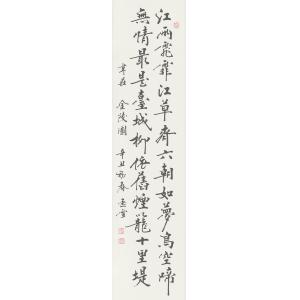 江雨霏霏江草齊六朝如夢鳥空啼
無情最是臺城柳依舊煙籠十里堤
韋莊 金陵圖 辛丑初春